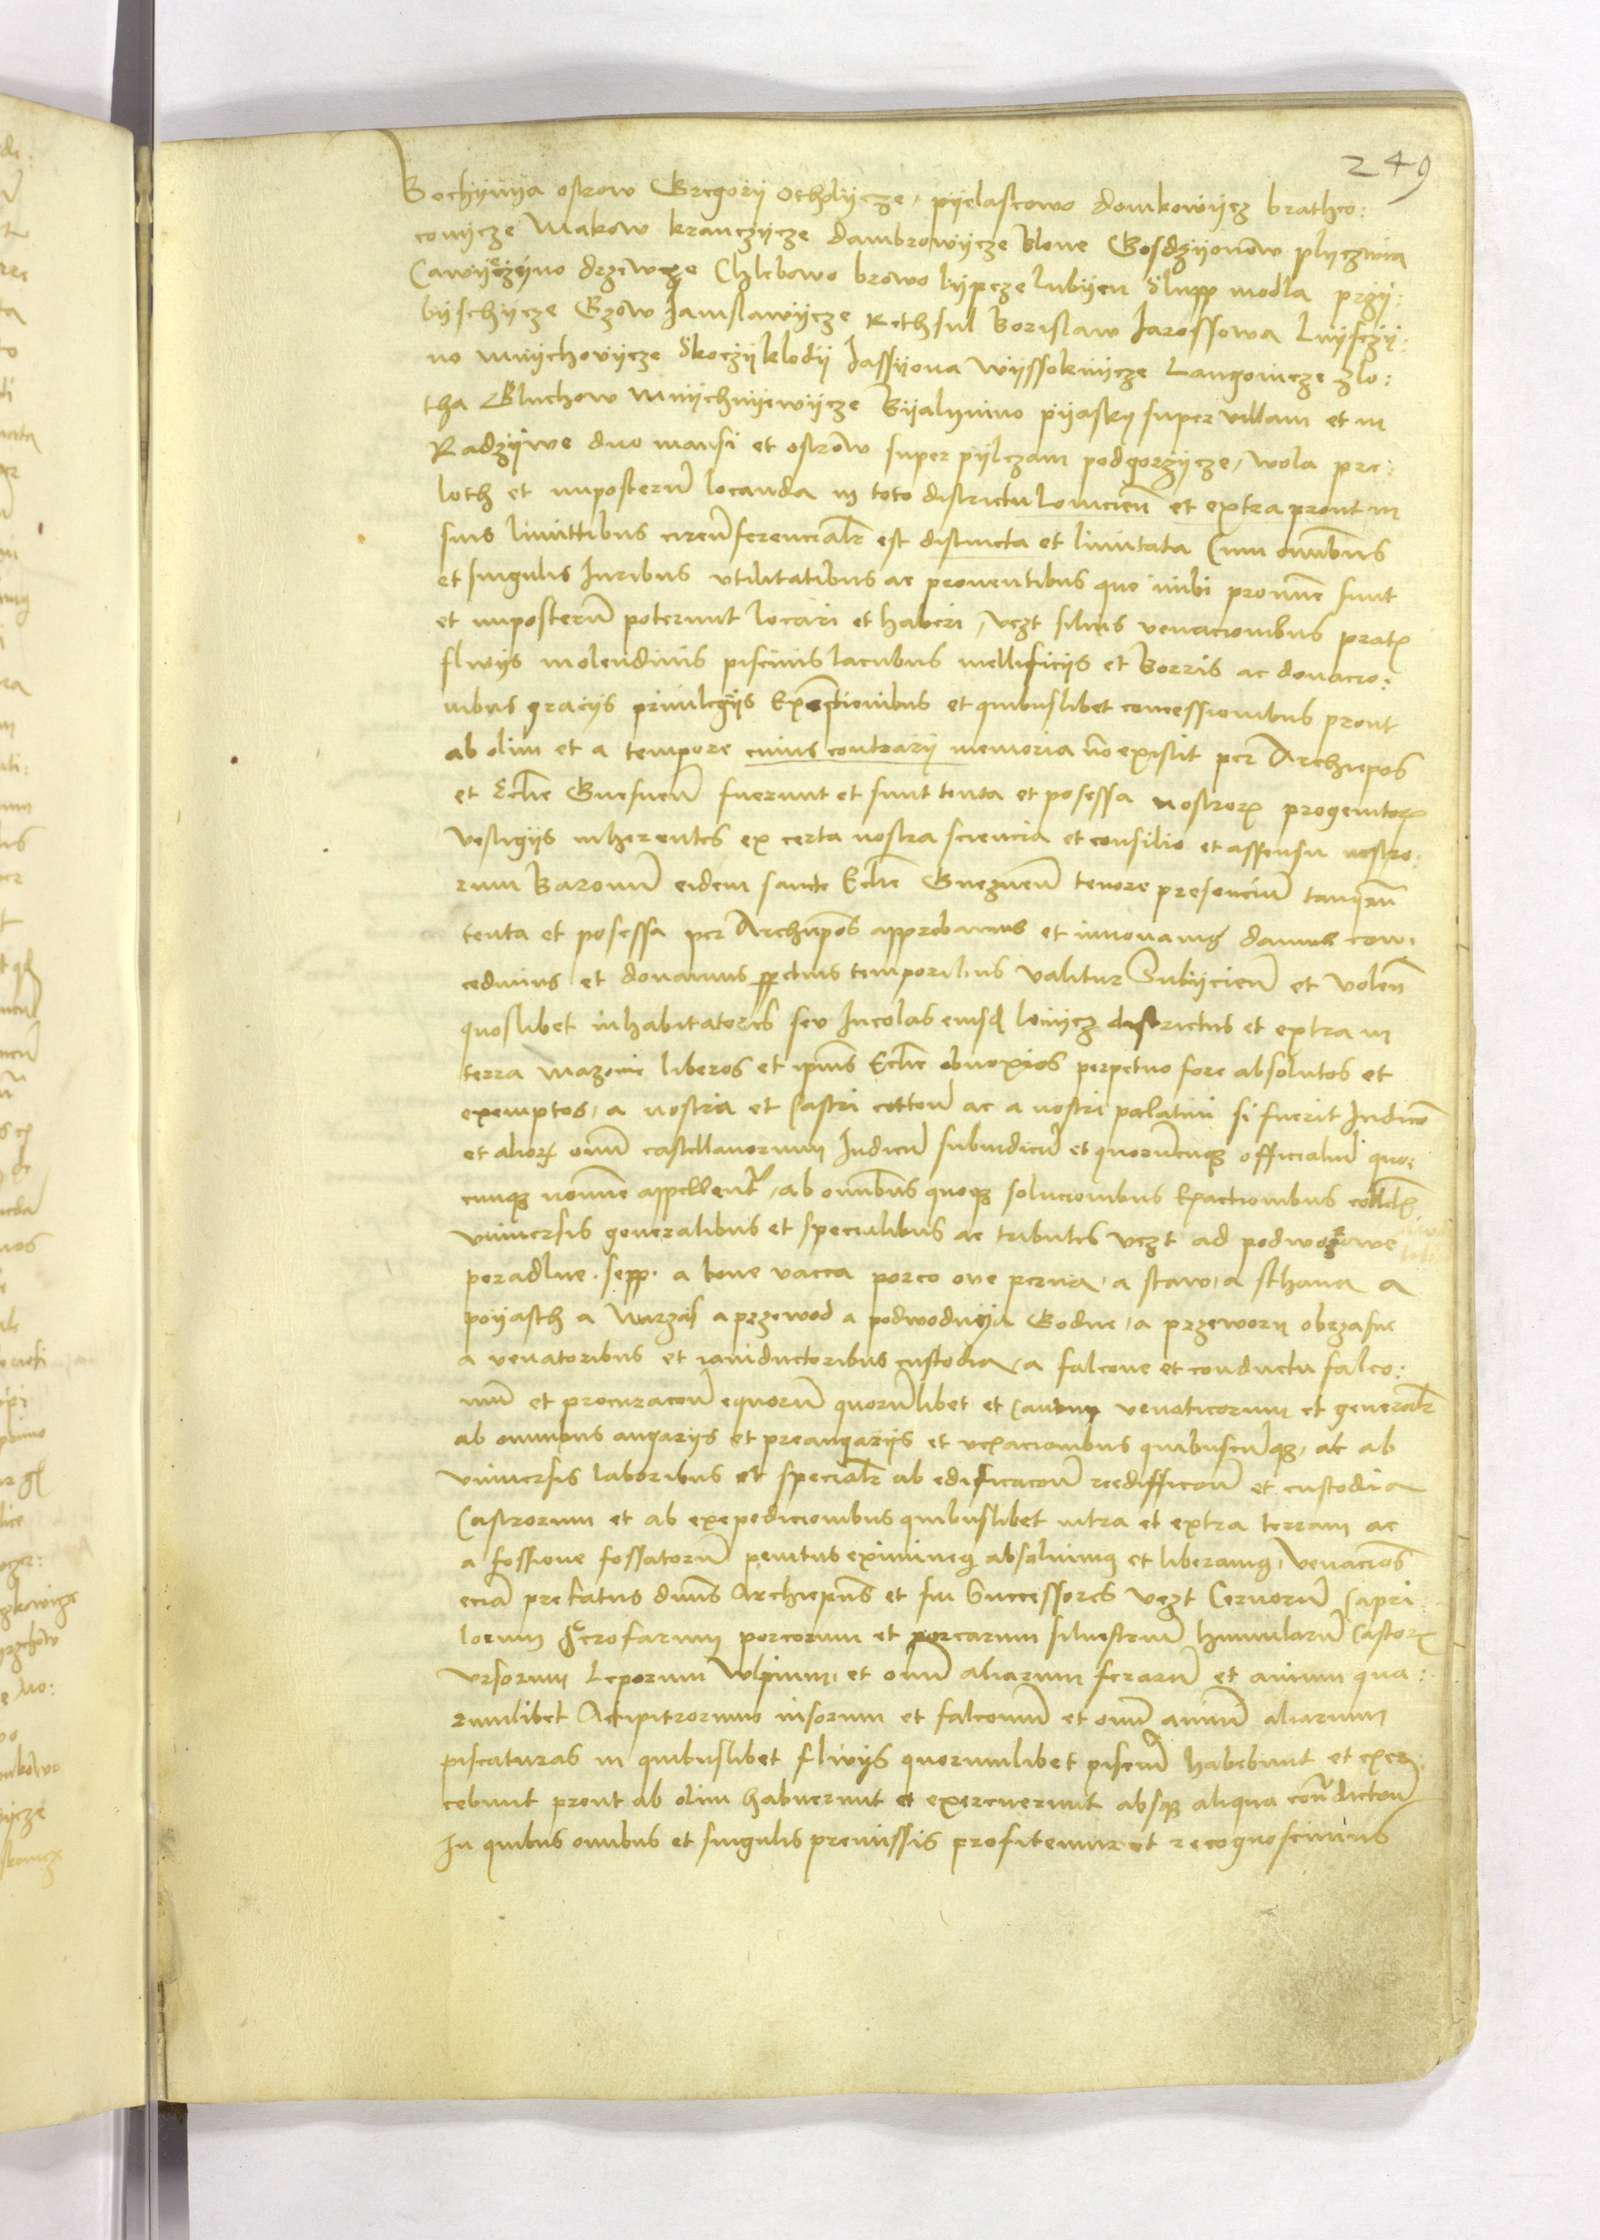 249
Bochynya ostrow Gregorij otholycze, pyelascowo domkowycz brathco:
comycze Makow kranczycze dambrowycze Blone Gosdzyonow plyczwia
drzewcze Chlebowo browo lypcze lubyen Slupp modla przy:
byschycze Gzow Jamslawycze Rethsul Borislaw Jarossowa Lnyschzy:
no mnychovycze Skoczyklodij Jassyona wyssoknycze Langonicze Zlo:
tha Gluchow mnychnyewycze Byalynino pyasky super villam et in
Radzywe duo mansi et ostrow super pylczam podgorzycze, wola pre:
loth et imposterum locanda in toto districtu loviciens et extra prout in
suis limittibus circumferencialr est distincta et limitata Cum omnibus
et singulis Juribus utilitatibus ac proventibus que inibi pronunc sunt
et imposterum poterunt locari et haberi, vczt silvis venacionibus pratis
flwijs molendinis piscinis lacubus mellificijs et Borris ac donacio:
nibus gracijs privilegijs Exemptionibus et quibuslibet concessionibus prout
ab olim et a tempore cuius contrarij memoria non existit per Archiepos
et Eccle Gnesnen fuerunt et sunt tenta et posessa nostrorum progenitorum
vestigijs inherentes ex certa nostra sciencia et consilio et assensu nostro:
rum Baronum eidem sancte Eccle Gneznen tenore presencium tanquam
tenta et posessa per Archiepos approbamus et innovamus damus con:
cedimus et donamus perpetuis temporibus valitur Subijcien et volen
quoslibet inhabitatores seu Incolas eiusd lovicz districtus et extra in
terra mazovie liberos et ipius Eccle obnoxios perpetuo fore absolutos et
exemptos, a nostra et Castri ac a nostri palatini si fuerit Judico
et aliorum omni castellanorum Judicum subiudicum et quorumcunque officialium quo:
cunque nomine appellentur, ab omnibus quoque solucionibus Exactionibus collectis
universis generalibus et specialibus ac tributis vczt ad podworowe
poradlne. sepp. a bove vacca porco ove perna, a stan, a sthava a
poyasth a Narzas a przewod a podwodnyja Godne, a przeworn obrzasne
a venatoribus et canductoribus custodia, a falcone et conductu falco:
num et procuracone equorum quorumlibet et Canum venaticorum et generalr
ab omnibus angarijs et preangarijs et vexacionibus quibuscunque, ac ab
universis laboribus et specialr ab edificacone reedifficone et custodia
Castrorum et ab exepedicionibus quibuslibet intra et extra terram ac
a fossione fossatorum penitus eximimus absolvimus et liberamus, venaciones
eciam prefatus dnus Archiepus et sui Successores vczt Cervorum Capri:
lorum Scrofarum porcorum et porcarum silvestrium hinnulorum Castorum
ursorum Leporum Wlpium, et omni aliarum ferarum et avium qua:
rumlibet Acipitrorum nisorum et falconum et omni avium aliarum
piscaturas in quibuslibet flwijs quorumlibet piscium habebunt et exer:
cebunt prout ab olim habuerunt et exercuerunt absque aliqua condiccione
In quibus omnibus et singulis premissis profitemur et recognoscimus